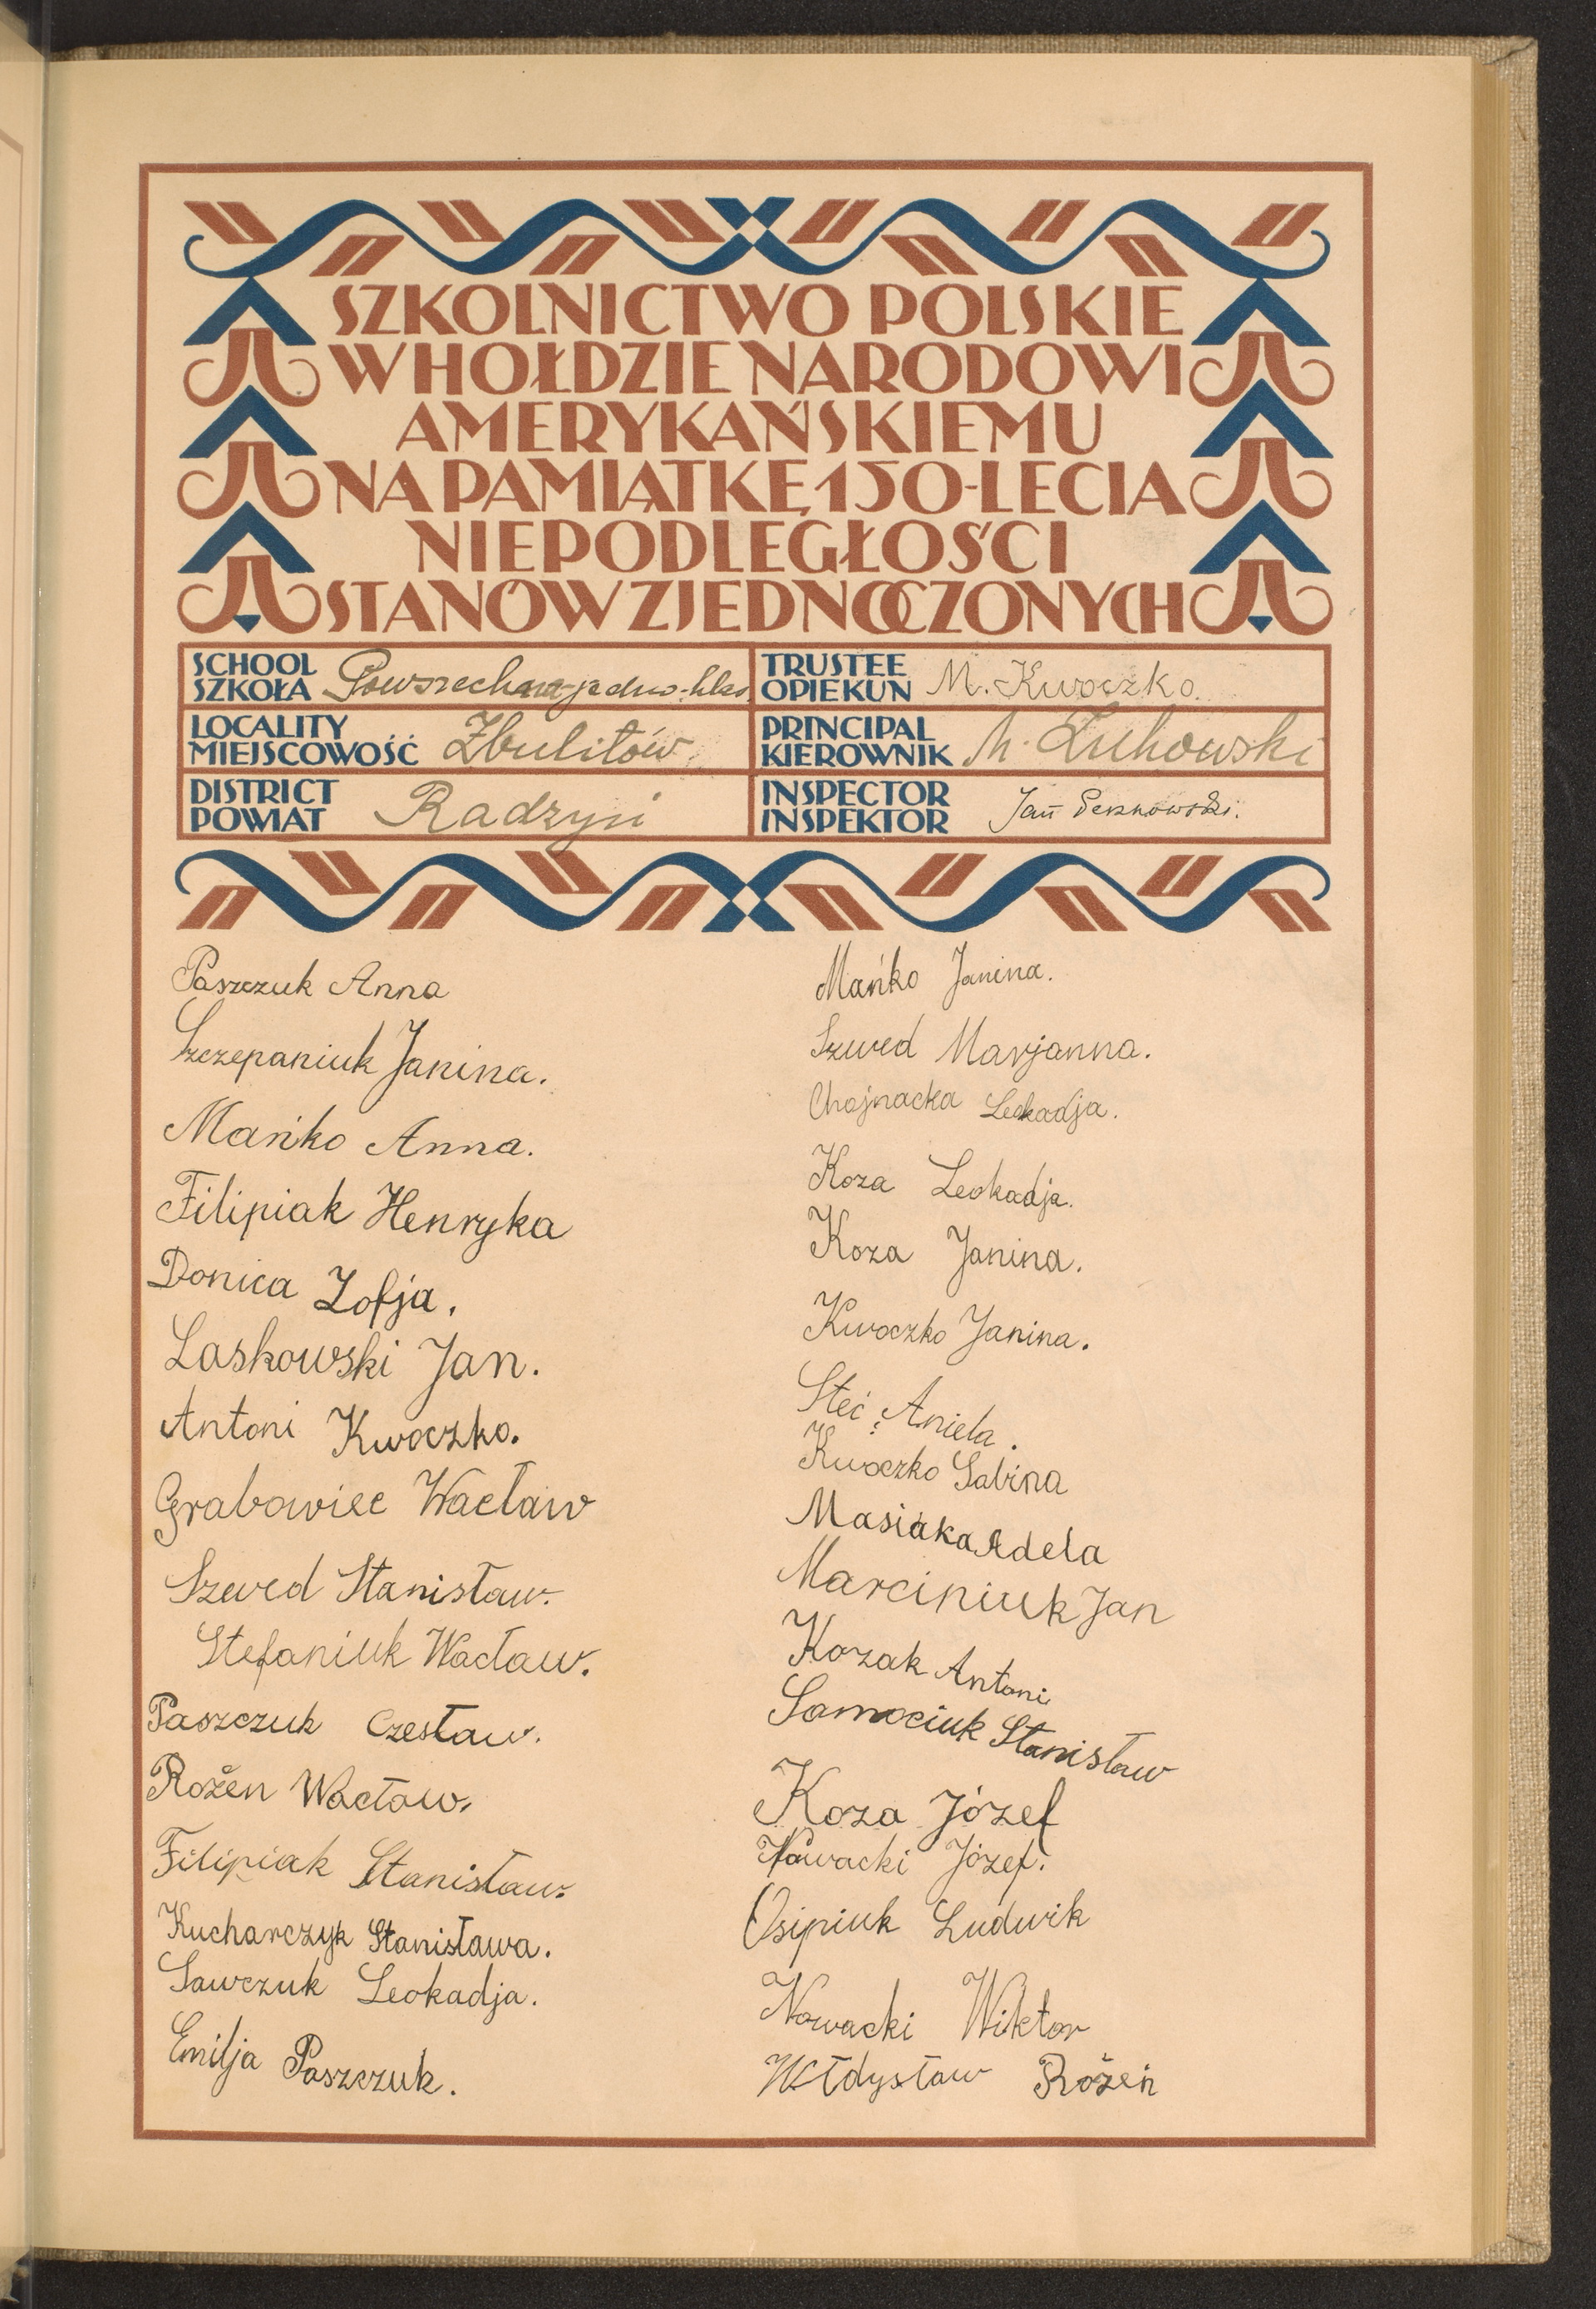 SZKOLNICTWO POLSKIE
W HOŁDZIE NARODOWI
AMERYKAŃSKIEMU
NA PAMIĄTKĘ 150-LECIA
NIEPODLEGŁOŚCI
STANÓW ZJEDNOCZONYCH
SCHOOL
SZKOŁA Powszechna-jedno-klas.
TRUSTEE
OPIEKUN M. Kwoczko.
LOCALITY
MIEJSCOWOŚĆ Zbulitów
PRINCIPAL
KIEROWNIK Łukowski
DISTRICT
POWIAT Radzyń
INSPECTOR
INSPEKTOR Jan
Paszczuk Anna
Szczepaniuk Janina.
Mańko Anna.
Filipiak Henryka
Donica Zofja.
Laskowski Jan.
Antoni Kwoczko.
Grabowiec Wacław
Szwed Stanisław.
Stefaniuk Wacław.
Paszczuk Czesław.
Rożen Wacław.
Filipiak Stanisław.
Kucharczyk Stanisława.
Sawczuk Leokadja.
Emilja Paszczuk.
Mańko Janina.
Szwed Marjanna.
Chojnacka Leokadja.
Koza Leokadja.
Koza Janina.
Kwoczko Janina.
Steć Aniela.
Kwoczko Sabina
Masiaka Adela
Marciniuk Jan
Kozak Antoni
Samociuk Stanisław
Koza Józef
Nowacki Józef.
Osipiuk Ludwik
Nowacki Wiktor
Włdysław Rożeń